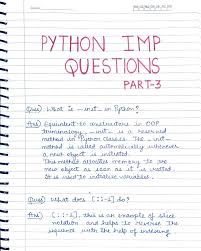 PYTHON IMP
QUESTIONS
PART-3
Ques) What is __init__ in Python?
Ans) Equivalent to constructors in OOP
terminology, __init__ is a reserved
method in Python classes. The __init__
method is called automatically whenever
a new object is initiated.
This method allocates memory to the
new object as soon as it is created.
It is used to initialize variables.
Ques) What does [::-1] do?
Ans) [::-1], this is an example of slice
notation and helps to reverse the
sequence with the help of indexing.